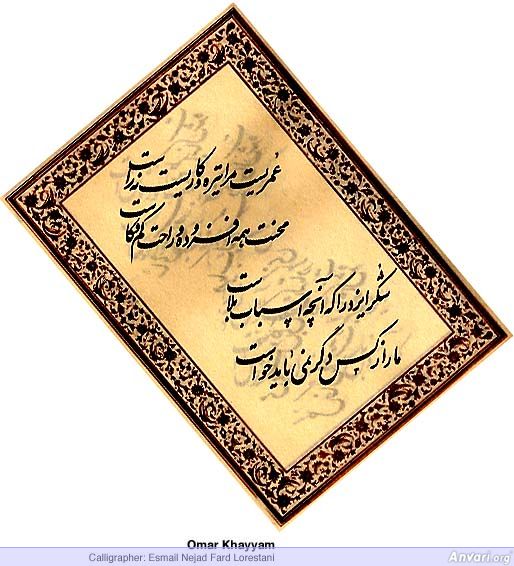 عمریست مرا تیره و کاریست نه راست
محنت همه افزوده و راحت کم و کاست
شکر ایزد را که آنچه اسباب بلاست
ما را ز کس دگر نمی‌باید خواست
Omar Khayyam
Calligrapher: Esmail Nejad Fard Lorestani
Anvari.org